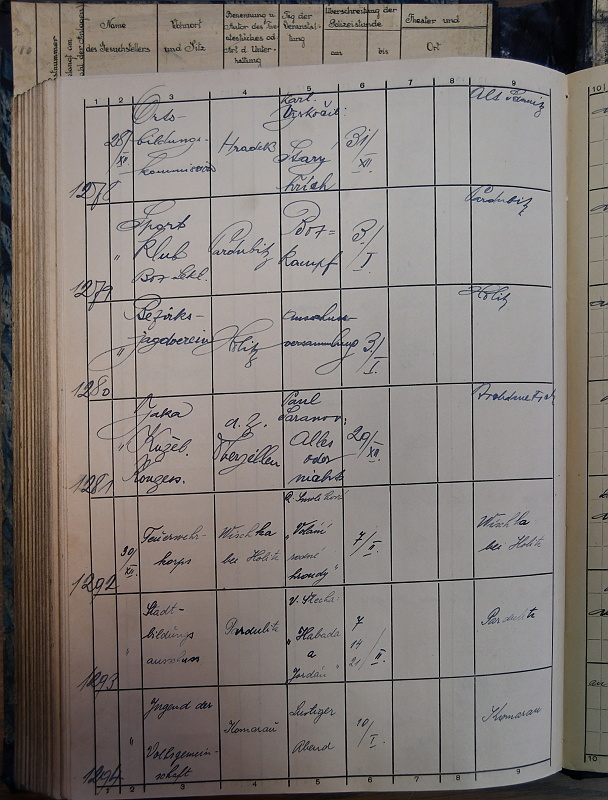 Name
des Gesuchstellers
Wohnort
und Nlz
Benennung u.
Autor des
od
Art d. Unter-
haltung
Tag der
Veranstal-
tung
Überschreitung der
Polizeistunde
am
bis
Theater und
Ort
1 2 3 4 5 6 7 8 9
1278
28/XII
Orts-
bildungs-
kommission
Hradek
Karl
Stary
hřích
31/XII
1279
"
Sport
Klub
Box-Sekt.
Pardubitz
Box=
kampf
3/I
Pardubitz
1280
"
Bezirks-
jagdverein
Holitz
Ausschuss-
versammlung
3/I
Holitz
1281
"
Kužel
Konzess.
Paul
Alles
oder
nichts
29/XII
1292
30/XII
Feuerwehr-
korps
Wischka
bei Holitz
"Volání
rodné
hroudy"
7/II
Wischka
bei Holitz
1293
"
Stadt-
bildungs
ausschuss
Pardubitz
"Habada
a
Jordán"
7
14
21/II
Pardubitz
1294
"
Jugend der
Volksgemein-
schaft
Komarau
Lustiger
Abend
10/I
Komarau
1 2 3 4 5 6 7 8 9
10
10